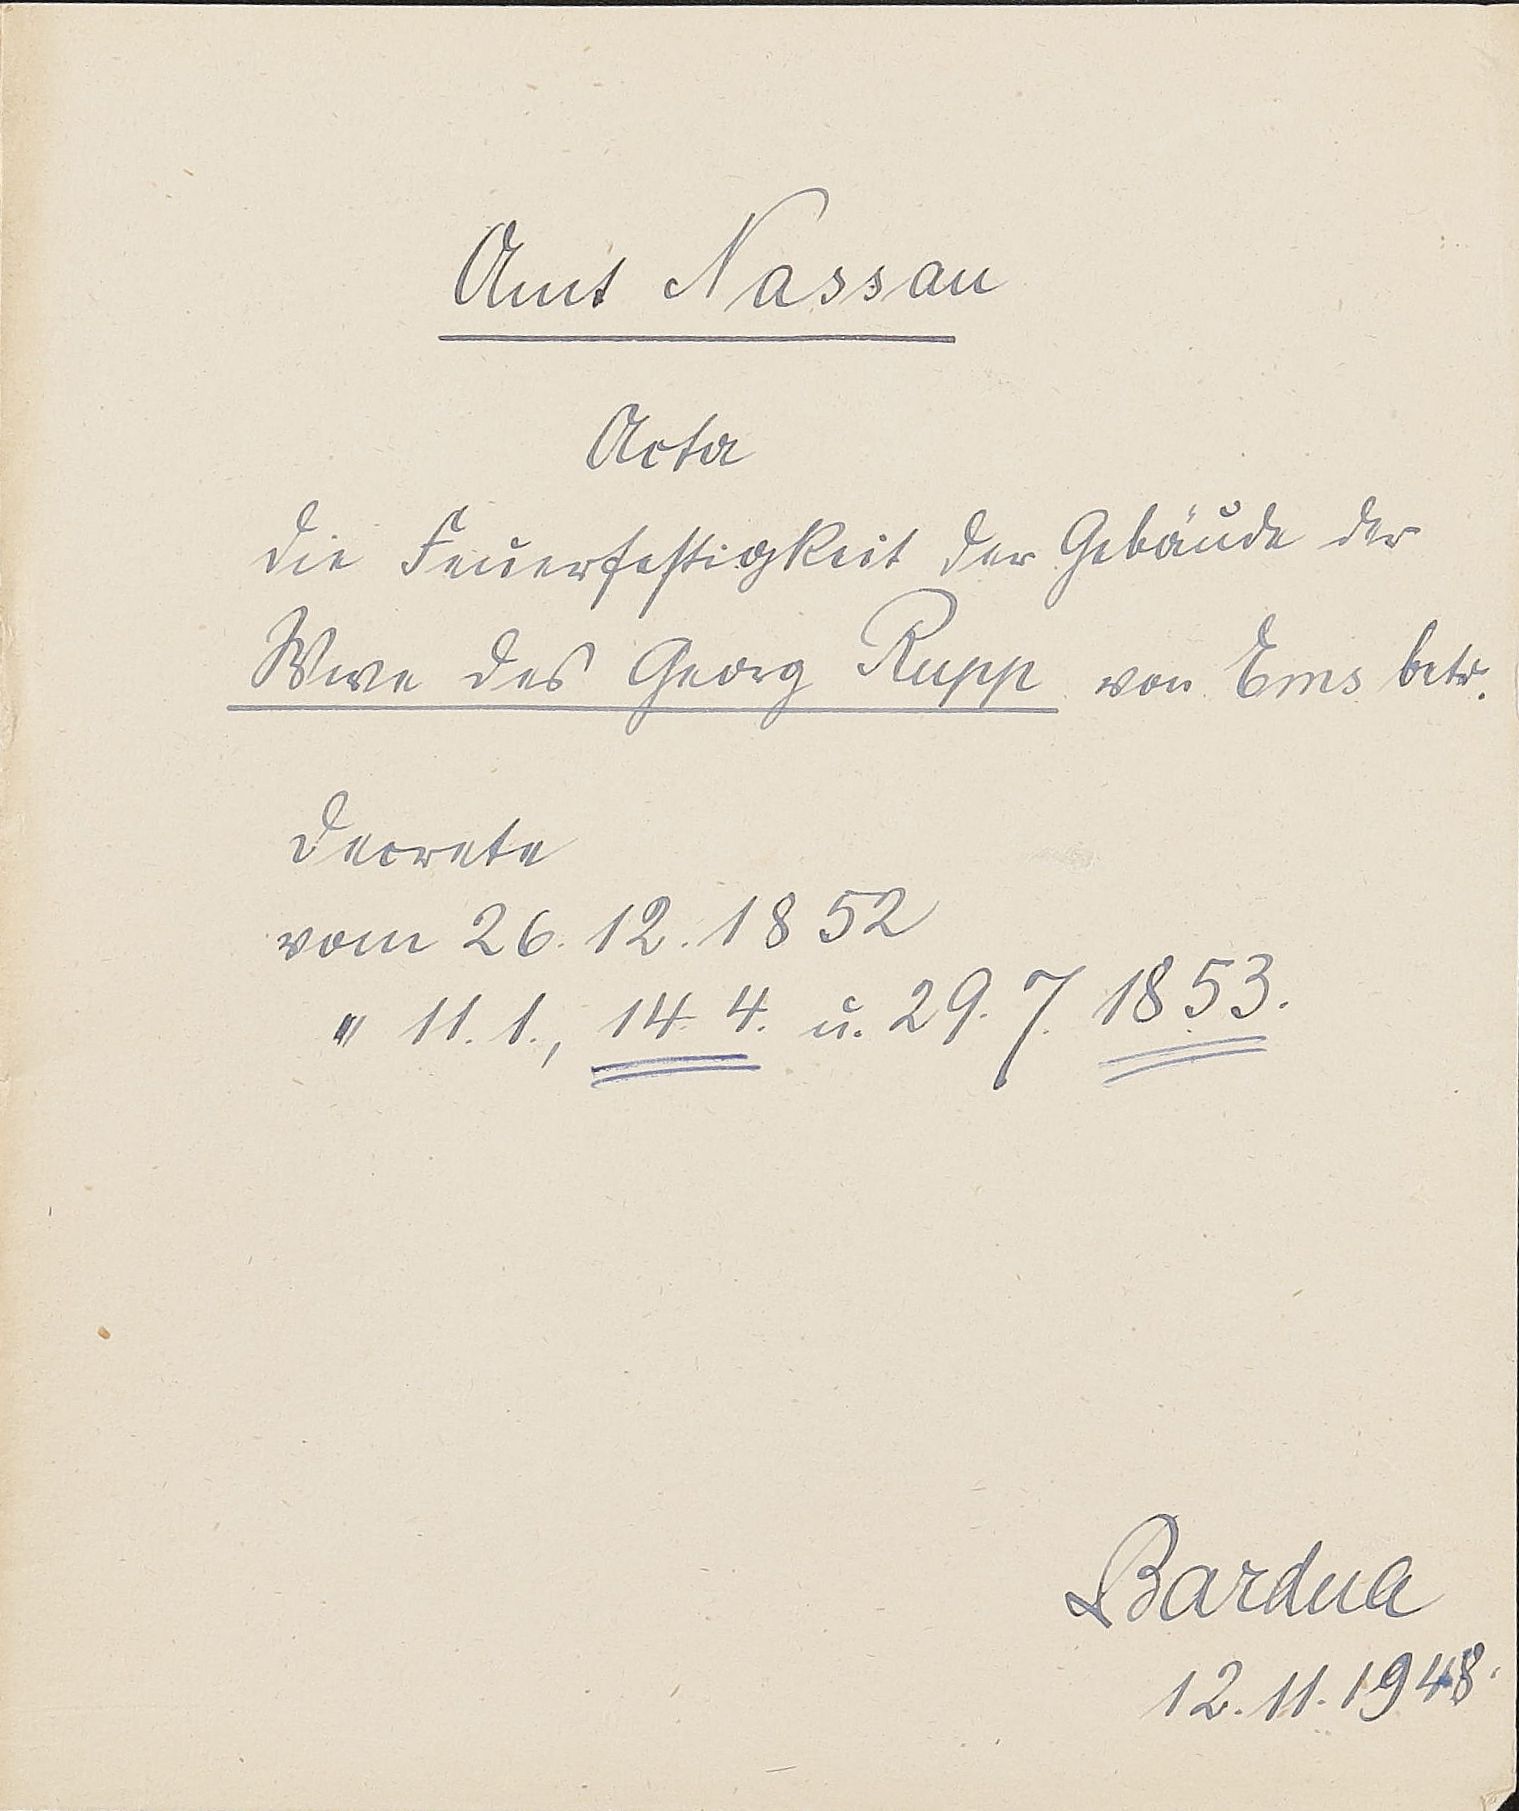 Amt Nassau
Acta
die Feuerfestigkeit der Gebäude der
Wwe des Georg Rupp von Ems betr.
Decrete
vom 26. 12. 1852
" 11. 1., 14. 4. u. 29. 7. 1853.
Bardua
12. 11. 1948.